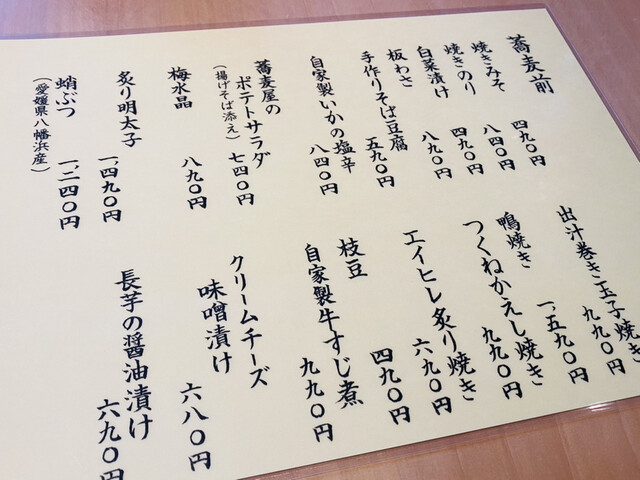 蕎麦前
焼きみそ 四九〇円
焼きのり 八四〇円
白菜漬け 四九〇円
板わさ 八九〇円
手作りそば豆腐 五九〇円
自家製いかの塩辛 八四〇円
蕎麦屋の
ポテトサラダ
(揚げそば添え) 七四〇円
梅水晶 八九〇円
炙り明太子 一、四九〇円
蛸ぶつ 一、二四〇円
(愛媛県八幡浜産)
出汁巻き玉子焼き 九九〇円
鴨焼き 一、五九〇円
つくねかえし焼き 九九〇円
エイヒレ炙り焼き 六九〇円
枝豆 四九〇円
自家製牛すじ煮 九九〇円
クリームチーズ
味噌漬け 六八〇円
長芋の醤油漬け 六九〇円